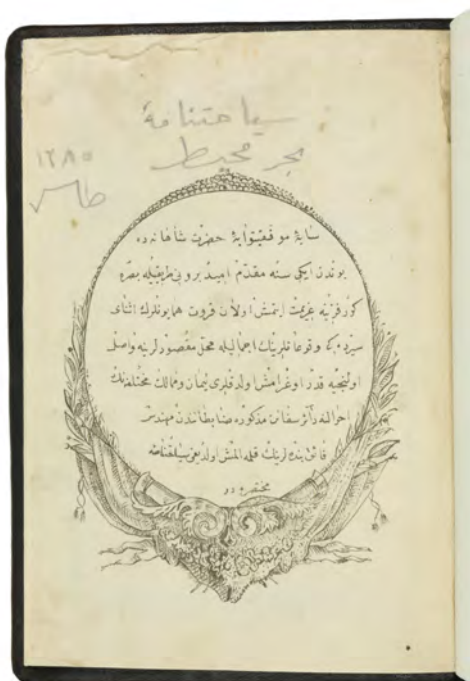 سیاحتنامهٔ
بحر محیط
١٢٨٥
سایهٔ موفقیتوایهٔ حضرت شاهانه ده
بوندن ایکی سنه مقدم امید برونی طریقیله بصره
کورفزینه عزیمت ایتمش اولان قروت همایونلرك اثنای
سیرده کی وقوعاتلرینك اجمالیله محل مقصودلرینه واصل
اولنجیه قدر اوغرامش اولدقلری لیمان وممالك مختلفه نك
احوالنه دائر سفائن مذکوره ضابطانندن مهندس
فائق بنده لرینك قلمه المش اولدیغی سیاحتنامه
مختصره در